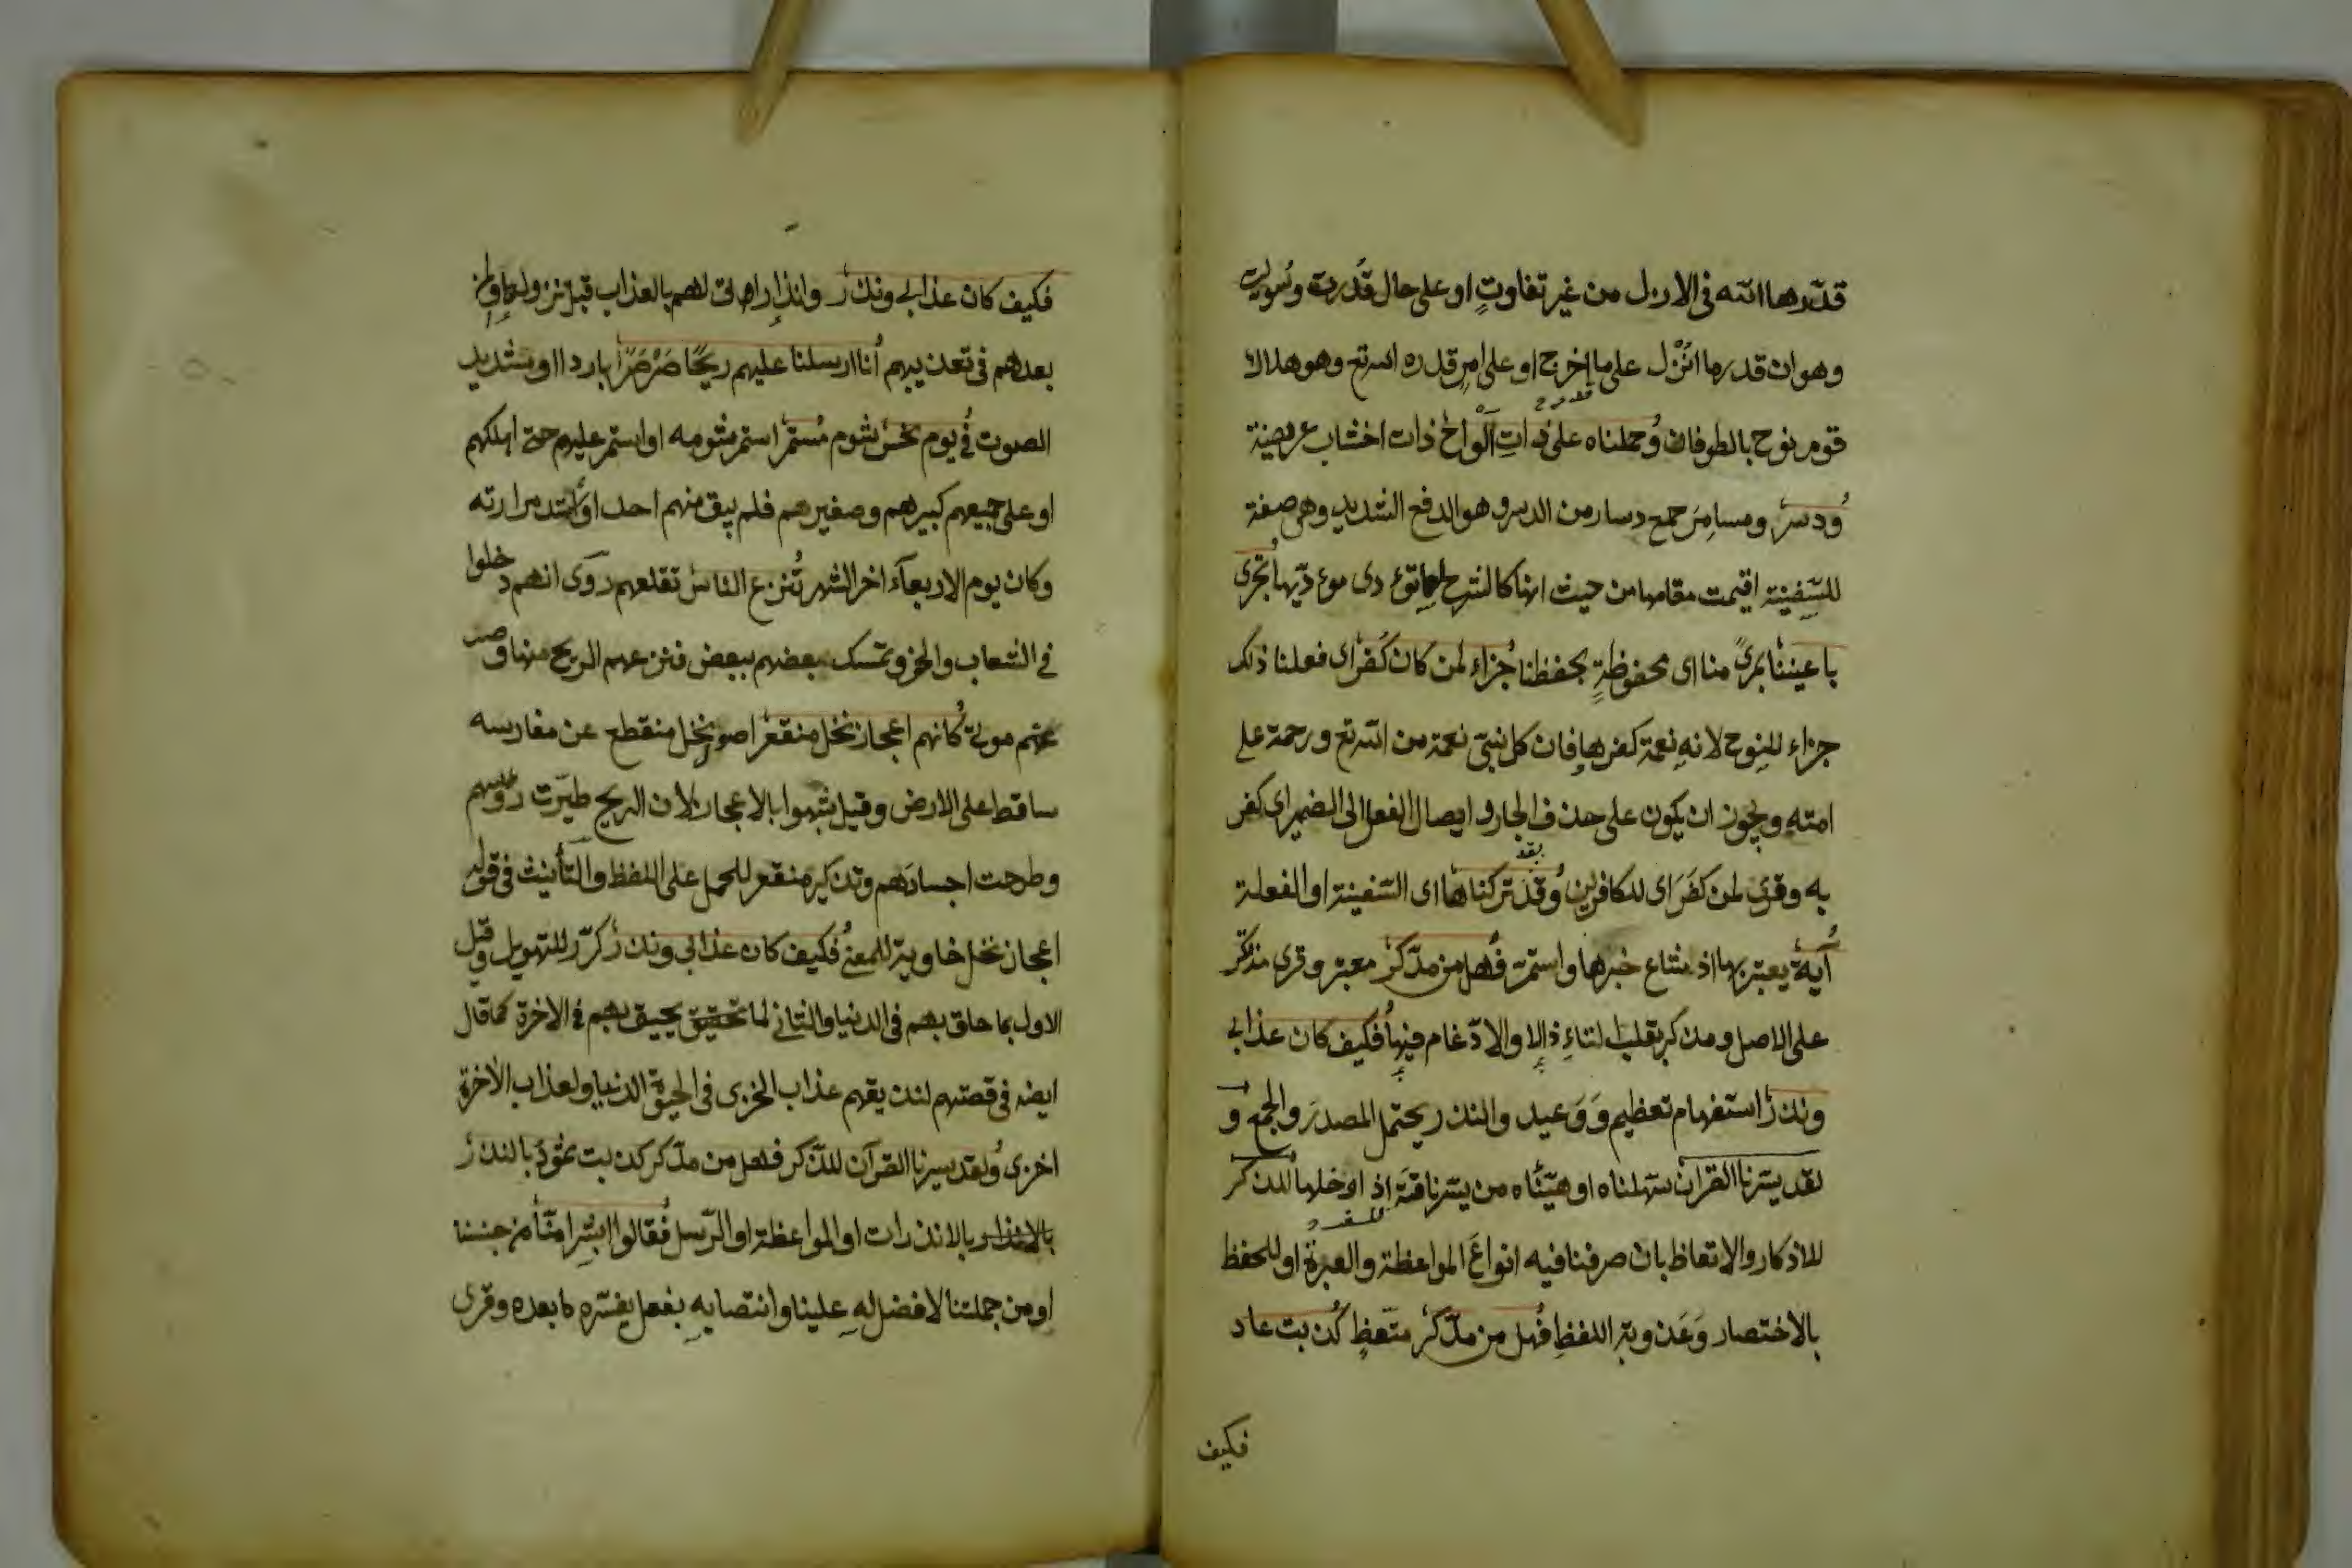 قدّرها الله في الازل من غير تفاوتٍ او على حال قُدّرت وسُويت
وهو ان قدر ما اُنْزِل على ما اخرج او على امرٍ قدره الله تع وهو هلاك
قدر ح
قوم نوح بالطوفان وَحملناه على ذاتِ اَلْواحٍ ذات اخشاب عريضة
وَدسر ومسامِر جمع دسار من الدسر وهو الدفع الشديد وهي صفة
للسّفينة اقيمت مقامها من حيث انها كالشرح لها تؤدى مؤدّيها تجرى
باعيننا بمرىً منا اى محفوظةٍ بحفظنا جُزاءً لمن كان كُفر اى فعلنا ذلك
جزاء للنوح لانهِ نعمة كفر بها فان كل نبيّ نعمة من الله تع ورحمة على
امتهِ ويجوز ان يكون على حذف الجار وايصال الفعل الى الضمير اى كفر
به وقرئ لمن كفَرَ اى للكافرين وَلقد تركناها اى السّفينة او الفعلة
آيةً يعتبر بها اذ شاع خبرها واستمرّ فهل من مدّكر معتبر وقرى مذتكر
على الاصل ومذكر بقلب التاءِ ذالا والادّغام فيها فكيف كان عذابى
ونذر استفهام تعظيم وَوَعيد والنذر يحتمل المصدرَ والجمع و
لقد يسّرنا القران سهّلناه او هيّئناه من يسّر ناقتَه اذا رحلها للذكر
للسفر
للاذكار والاتعاظ بان صرفنا فيه انواعَ المواعظة والعبرة او للحفظ
بالاختصار وَعَذوبة اللفظِ فهل من مدّكر متّعظٍ كذبت عاد
فكيف
فكيف كان عذابى ونذر وانذاراتى لهم بالعذاب قبل نزولها او لمن
بعدهم في تعذيبهم اُنا ارسلنا عليهم ريحًا صَرْصَرًا باردا او شديد
الصوت في يوم نحس شوم مُستمرّ استمر شومه او استمر عليهم حتى اهلكهم
او على جميعهم كبيرهم وصغيرهم فلم يبق منهم احد او اشتد مرارته
وكان يوم الاربعاء اخر الشهر تُنزع الناسَ تقلعهم روى انهم دخلوا
في الشعاب والحفر وتمسك بعضهم ببعض فنزعهم الريح منها وصر
عتهم موتى كانهم اعجاز نخل منقعر اصول نخل منقطع عن مغارسه
ساقط على الارض وقيل شبهوا بالاعجاز لان الريح طيّرت رؤسهم
وطرحت اجسادَهم وتذكير منقعر للحمل على اللفظ والتأنيث في قوله
اعجاز نخل خاوية للمعنى فكيف كان عذابى ونذر كرّر للتهويل وقيل
الاول بما حاق بهم في الدنيا والثانى لما يحيق بهم في الاخرة كما قال
ايضه في قصتهم لنذيقهم عذاب الخزى في الحيوة الدنيا ولعذاب الاخرة
اخزى وَلقد يسرنا القرآن للذكر فهل من مدّكر كذبت ثمودُ بالنذر
بالانذارات او المواعظة او الرّسل فقالوا ابشرا منّا من جنسنا
او من جملتنا لا فضل لهِ علينا وانتصابهِ بفعل يفسّره ما بعده وقرى